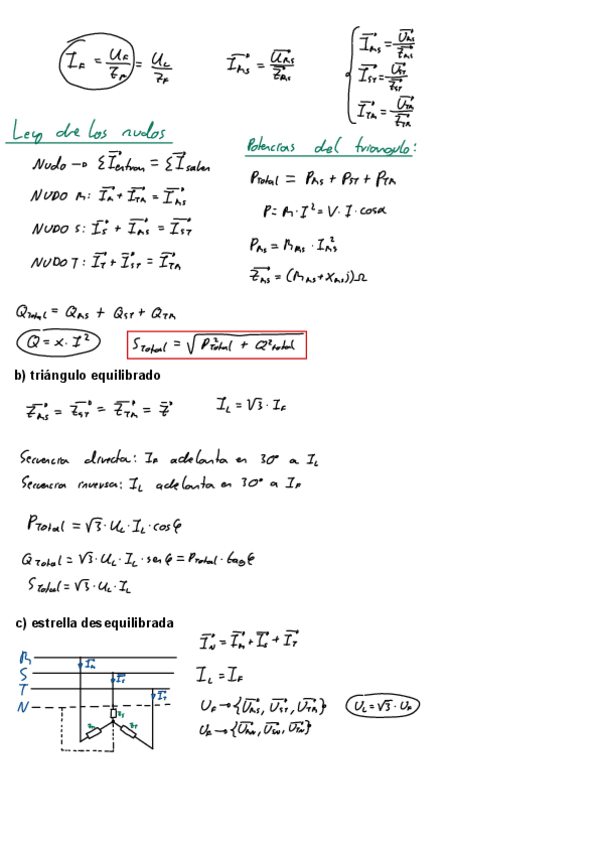 I_F = U_F/Z_F = U_L/Z_F
I⃗_RS = U⃗_RS/Z⃗_RS
I⃗_RS = U⃗_RS/Z⃗_RS
I⃗_ST = U⃗_ST/Z⃗_ST
I⃗_TR = U⃗_TR/Z⃗_TR
Ley de los nudos
Nudo → Σ I⃗entran = Σ I⃗salen
NUDO R: I⃗_R + I⃗_TR = I⃗_RS
NUDO S: I⃗_S + I⃗_RS = I⃗_ST
NUDO T: I⃗_T + I⃗_ST = I⃗_TR
Potencias del triangulo:
P_Total = P_RS + P_ST + P_TR
P = R · I² = V · I · cosα
P_RS = R_RS · I_RS²
Z⃗_RS = (R_RS + X_RS j) Ω
Q_Total = Q_RS + Q_ST + Q_TR
Q = X · I²
S_Total = √(P²_Total + Q²_total)
b) triángulo equilibrado
Z⃗_RS = Z⃗_ST = Z⃗_TR = Z⃗
I_L = √3 · I_F
Secuencia directa: I_F adelanta en 30° a I_L
Secuencia inversa: I_L adelanta en 30° a I_F
P_Total = √3 · U_L · I_L · cosφ
Q_Total = √3 · U_L · I_L · senφ = P_Total · tagφ
S_Total = √3 · U_L · I_L
c) estrella desequilibrada
R
S
T
N
I_R
I_S
I_T
Z_R
Z_S
Z_T
I⃗_N = I⃗_R + I⃗_S + I⃗_T
I_L = I_F
U_F → {U⃗_RS, U⃗_ST, U⃗_TR}
U_L = √3 · U_F
U_F → {U⃗_RN, U⃗_SN, U⃗_TN}